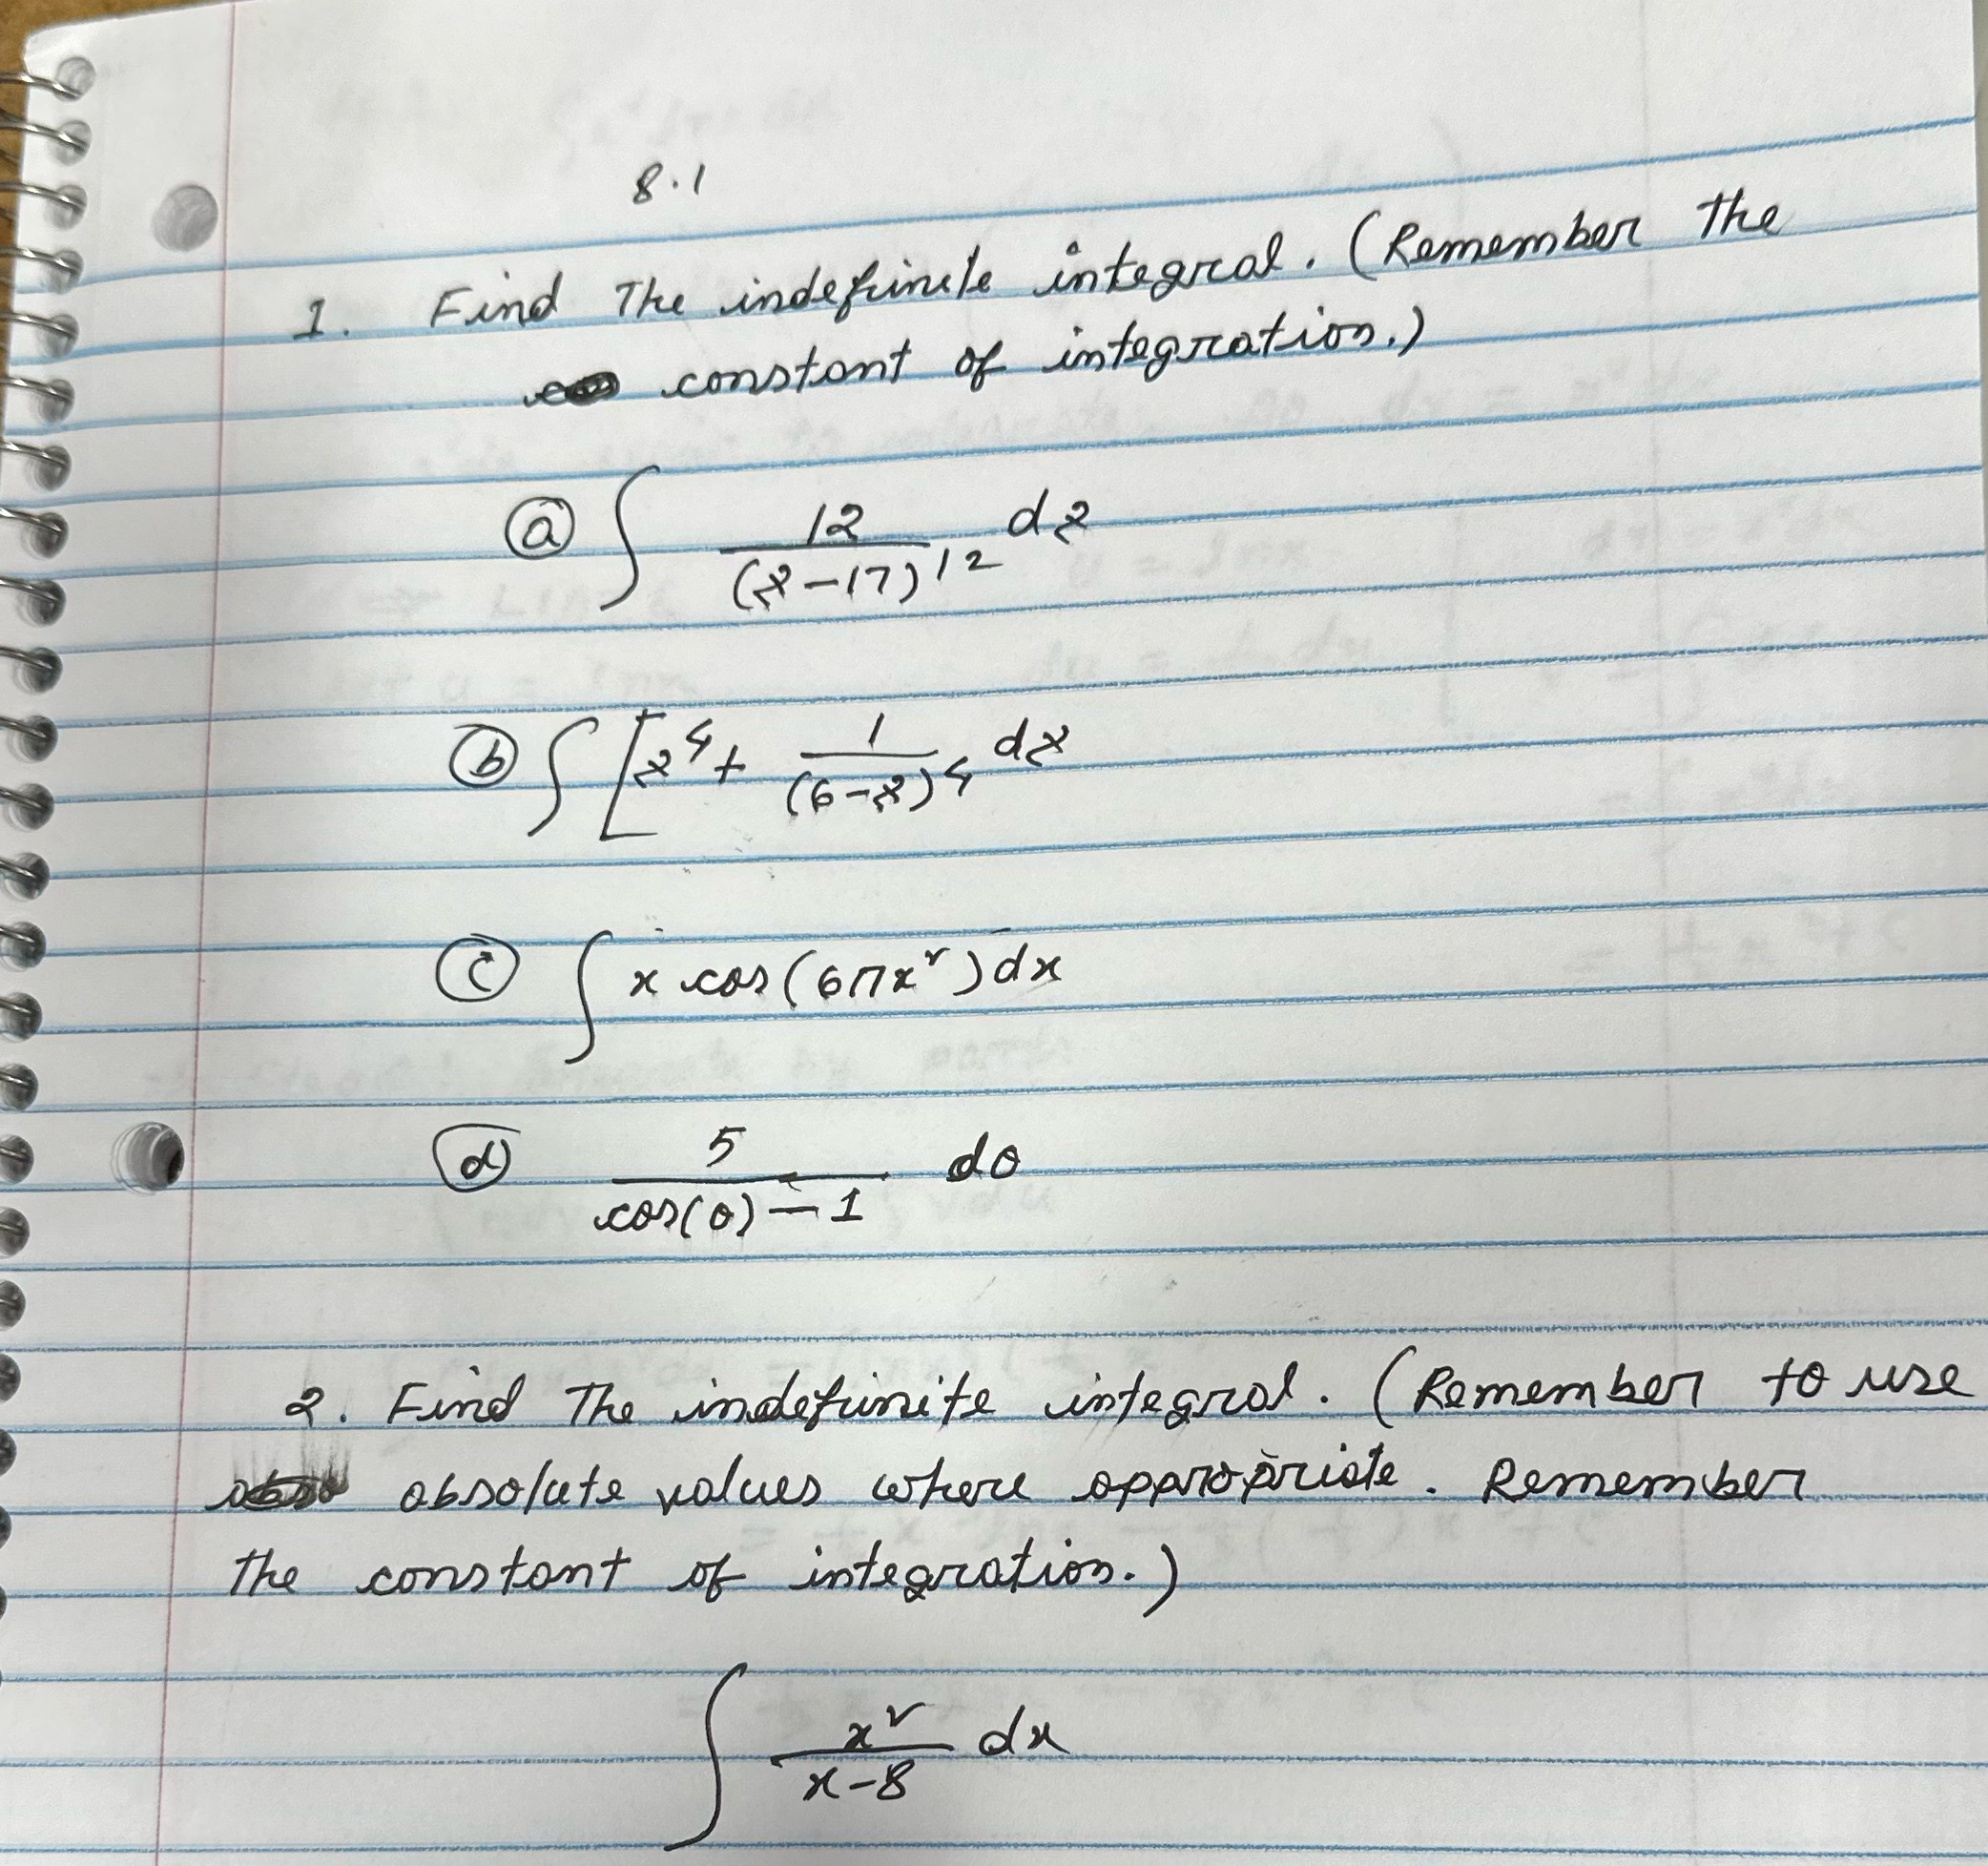 8.1
1. Find The indefinite integral. (Remember the
constant of integration.)
ⓐ ∫ 12/(z-17)^12 dz
ⓑ ∫ [z^4 + 1/(6-z)^4 dz
ⓒ ∫ x cos(6πx²) dx
ⓓ 5/(cos(θ) - 1) dθ
2. Find The indefinite integral. (Remember to use
absolute values where appropriate. Remember
the constant of integration.)
∫ x²/(x-8) dx